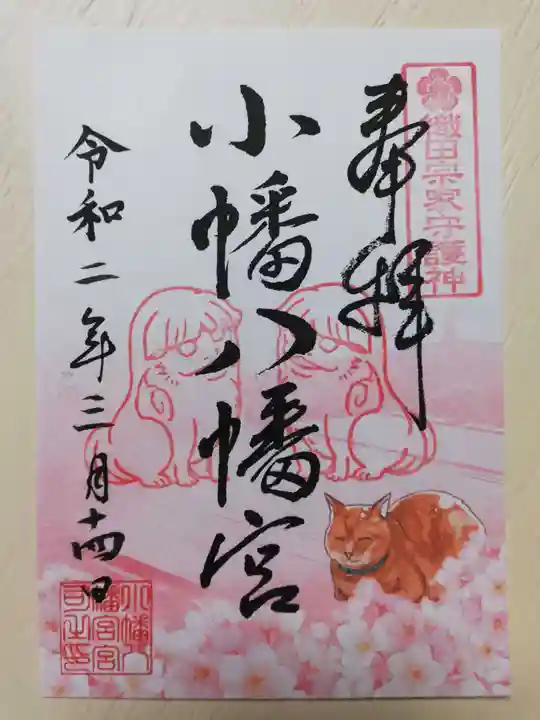 織田宗家守護神
奉拝
小幡八幡宮
令和二年三月十四日
小幡八
幡宮宮
司之印